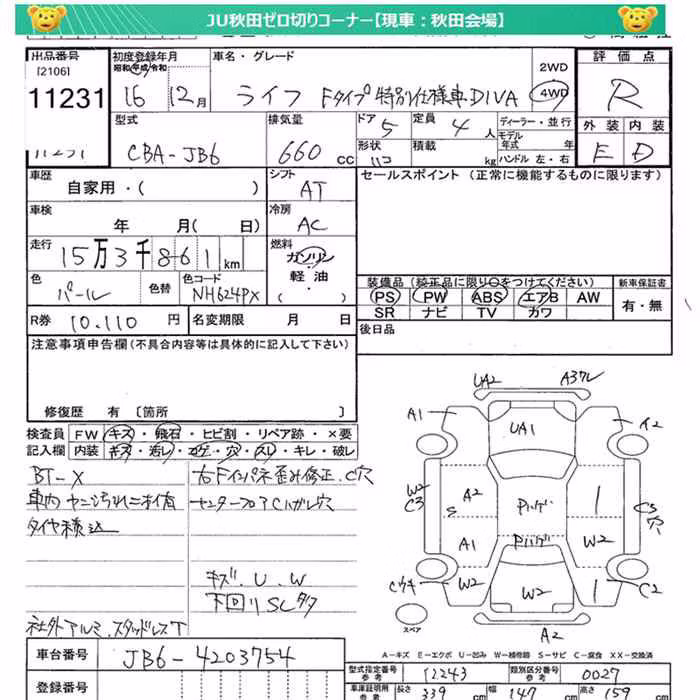 JU秋田ゼロ切りコーナー【現車：秋田会場】
出品番号 初度登録年月 車名・グレード 評価点
[2106] 昭和 平成 令和 2WD
11231 16 12月 ライフ Fタイプ特別仕様車DIVA 4WD R
型式 排気量 ドア 定員 ディーラー・並行 外装 内装
CBA-JB6 660 CC 5 4人 モデル年式 年 E D
形状 積載 kg ハンドル 左・右
車歴 シフト セールスポイント（正常に機能するものに限ります）
自家用・（ ） AT
車検 冷房
年 月(日) AC
走行 燃料
15万3千861km ガソリン
軽油
色 色替 色コード 装備品（純正品に限り○をつけてください） 新車保証書
パール NH624PX （ ） PS PW ABS エアB AW 有・無
SR ナビ TV カワ
R券 10,110円 名変期限 月 日 後日品
注意事項申告欄（不具合内容等は具体的に記入して下さい）
修復歴 有〔箇所 〕
検査員 FW キズ・飛石・ヒビ割・リペア跡・×要
記入欄 内装 キズ・汚レ・コゲ・穴・スレ・キレ・破レ
BT-X
車内ヤニ汚れニオイ有
タイヤ積込
右Fインパネ歪み修正、C穴
センターフロアCハガレ穴
キズ、U、W
下回りSCサタ
社外アルミ、スタッドレスT
UA2 A3ワレ
A1 UA1 イ2
W2 C3 A2 S Pハゲ C3 穴
A1 Pハゲ W2
W2 W2 C2
A2
スペア
A－キズ E－エクボ U－凹み W－補修跡 S－サビ C－腐食 XX－交換済
車台番号 JB6-4203754
型式指定番号 参考 12243 類別区分番号 参考 0027
登録番号
車庫証明用 参考 長さ 339cm 幅 147cm 高さ 157cm